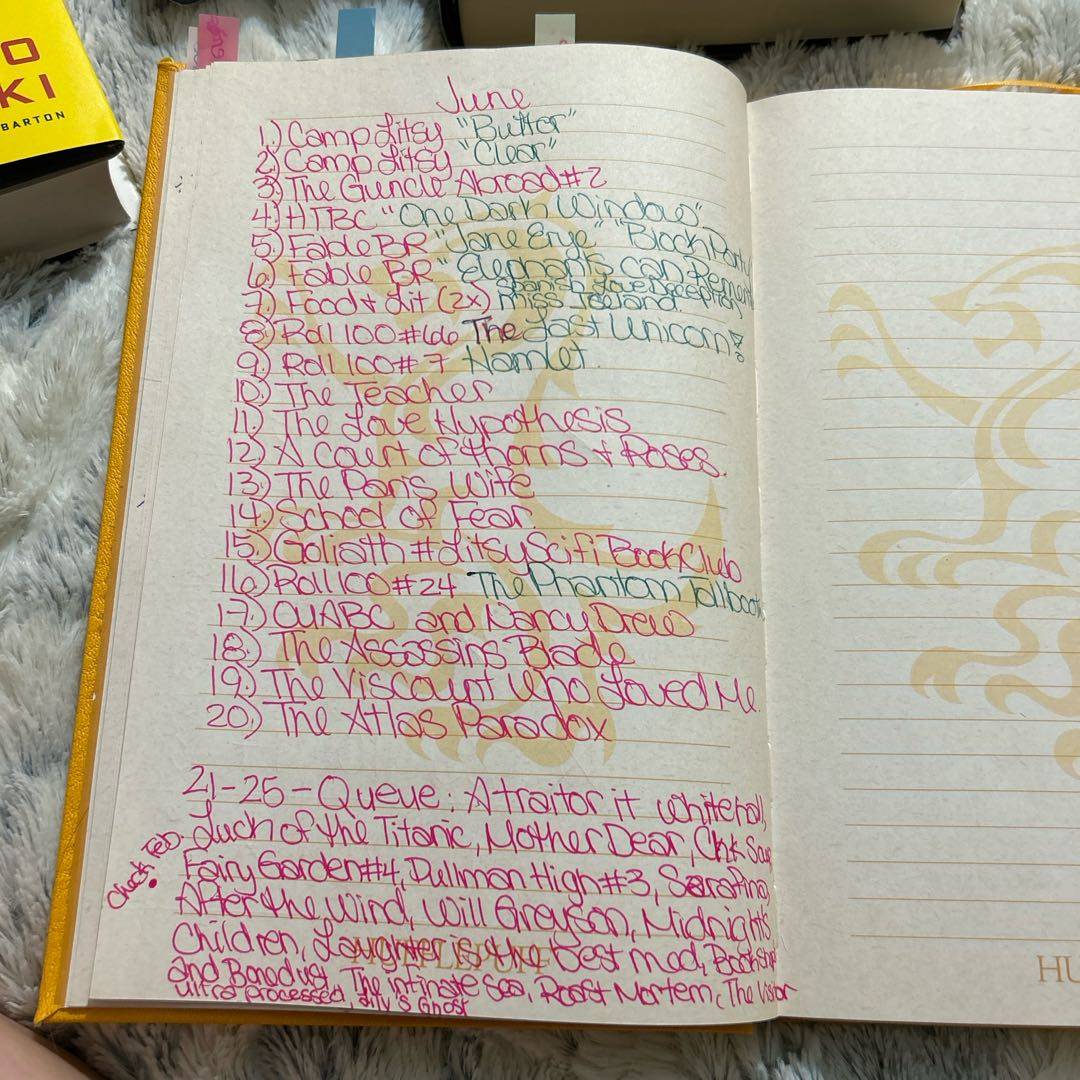 O
KI
BARTON
June
1.) Camp Litsy "Butter"
2.) Camp Litsy "Clear"
3.) The Guncle Abroad #2
4.) HTBC "One Dark Window"
5.) Fable BR "Jane Eyre" "Block Party"
6.) Fable BR "Elephants can Remem
7.) Food & Lit (2x) Spanish Love Deception
Miss Iceland
8.) Roll 100 #66 The Last Unicorn
9.) Roll 100 #7 Hamlet.
10.) The Teacher
11.) The Love Hypothesis
12.) A Court of Thorns & Roses.
13.) The Paris Wife
14.) School of Fear
15.) Goliath #LitsySciFiBookClub
16.) Roll 100 #24 The Phantom Tollbooth
17.) OUABC and Nancy Drew
18.) The Assassins Blade
19.) The Viscount Who Loved Me.
20.) The Atlas Paradox
21-25 - Queue: A traitor it whitehall,
Check Feb. Luck of the Titanic, Mother Dear, Chk Soup
Fairy Garden #4, Pullman High #3, Serafina,
After the wind, Will Greyson, Midnight's
Children, Laughter is the best med, Bookshops
HUFFLEPUFF
and Bonedust, The infinate Sea, Roast Mortem, The Visitor
ultra processed, ghost
HU